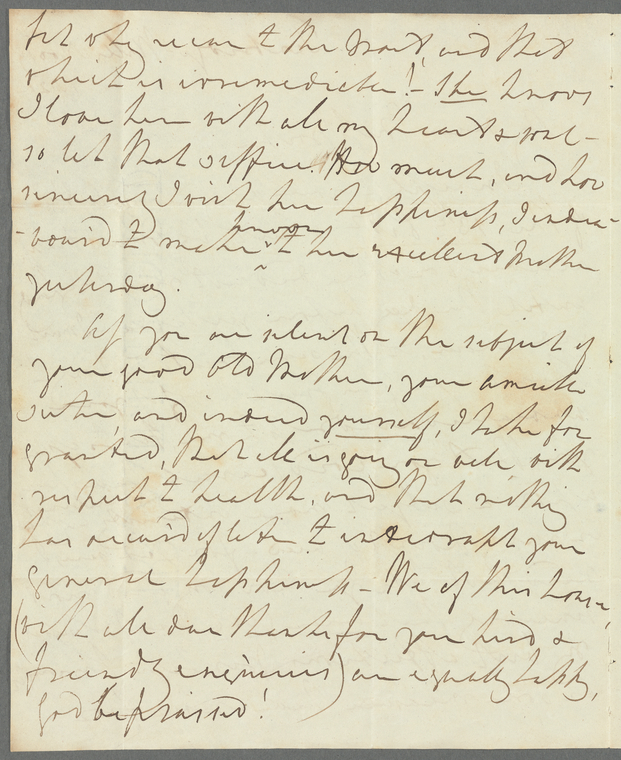 but why recur to the mout, and that
which is irremediable! - She knows
I love her with all my heart & soul -
so let that suffice. How much, and how
sincerely I wish her happiness, I endea-
-vour'd to make known to her excellent Mother
yesterday.
As you are silent on the subject of
your good Old Mother, your amiable
sister, and indeed yourself, I take for
granted, that all is going on well, with
respect to health, and that nothing
has occurr'd of late to interrupt your
general happiness - We of this house,
(with all due thanks for your kind &
friendly enquiries) are equally happy,
God be praised!